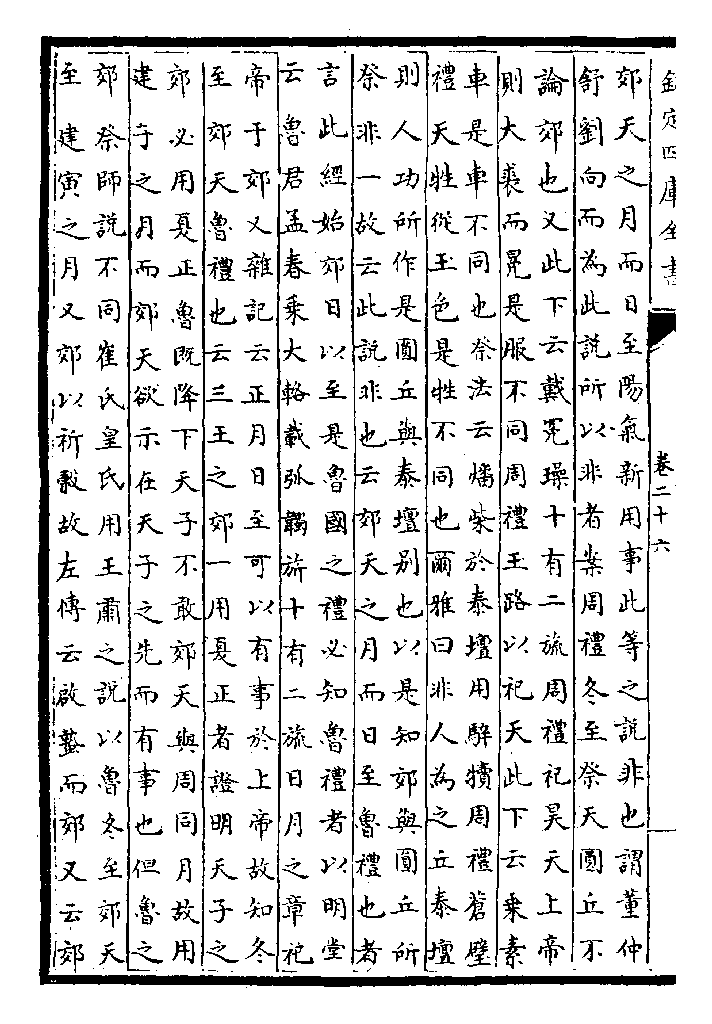 欽定四庫全書
卷二十六
郊天之月而日至陽氣新用事此等之說非也謂董仲
舒劉向而為此說所以非者案周禮冬至祭天圜丘不
論郊也又此下云戴冕璪十有二旒周禮祀昊天上帝
則大裘而冕是服不同周禮玉路以祀天此下云乗素
車是車不同也祭法云燔柴於泰壇用騂犢周禮蒼璧
禮天牲從玉色是牲不同也爾雅曰非人為之丘泰壇
則人功所作是圜丘與泰壇别也以是知郊與圜丘所
祭非一故云此說非也云郊天之月而日至魯禮也者
言此經始郊日以至是魯國之禮必知魯禮者以明堂
云魯君孟春乗大輅載弧韣旂十有二旒日月之章祀
帝于郊又雜記云正月日至可以有事於上帝故知冬
至郊天魯禮也云三王之郊一用夏正者證明天子之
郊必用夏正魯既降下天子不敢郊天與周同月故用
建子之月而郊天欲示在天子之先而有事也但魯之
郊祭師說不同崔氏皇氏用王肅之說以魯冬至郊天
至建寅之月又郊以祈穀故左傳云啟蟄而郊又云郊